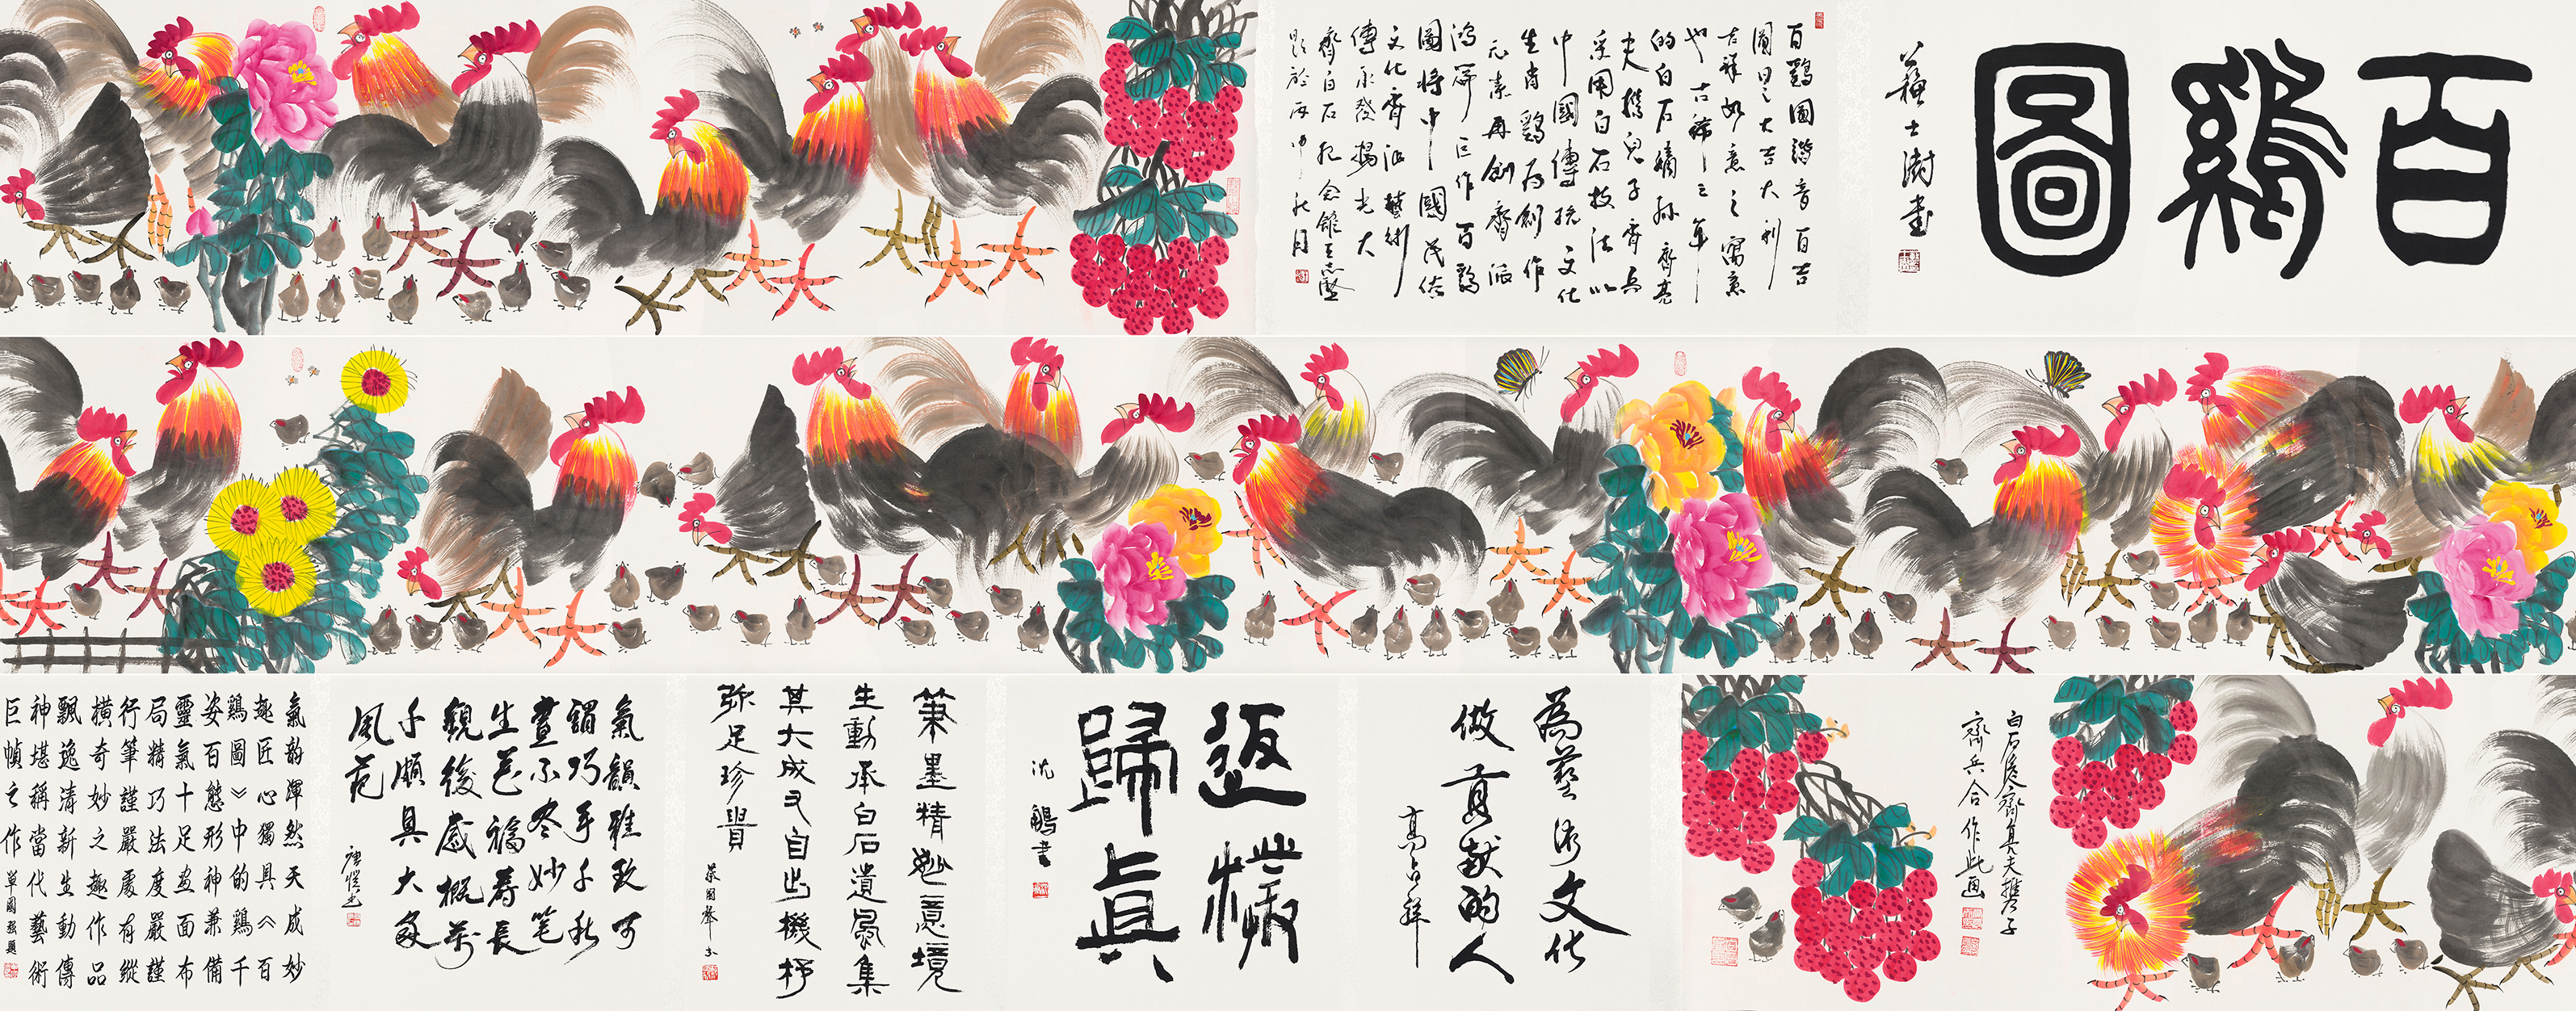 百鷄圖
蘇士澍書
百鷄圖諧音百吉
圖里之大吉大利
吉祥如意之寓意
也古稀之年
的白石嫡孫齊真
夫攜兒子齊兵
采用白石技法以
中國傳統文化
生肖鷄為創作
元素再創齊派
鴻篇巨作百鷄
圖將中國民俗
文化齊派藝術
傳承發揚光大
齊白石紀念館王志堅
題於丙申秋月
白石後裔齊真夫攜子
齊兵合作此画
為藝術文化
做貢献的人
高占祥
返樸
歸真
沈鵬書
筆墨精妙意境
生動承白石遺風集
其大成又自出機杼
弥足珍貴
氣韻雅致可
謂巧手千秋
畫不尽妙笔
生花福壽長
觀後感概萬
千頗具大家
風范
氣韵渾然天成妙
趣匠心獨具《百
鷄圖》中的鷄千
姿百態形神兼備
靈氣十足画面布
局精巧法度嚴謹
行筆謹嚴處有縱
横奇妙之趣作品
飄逸清新生動傳
神堪稱當代藝術
巨幀之作
單國强題